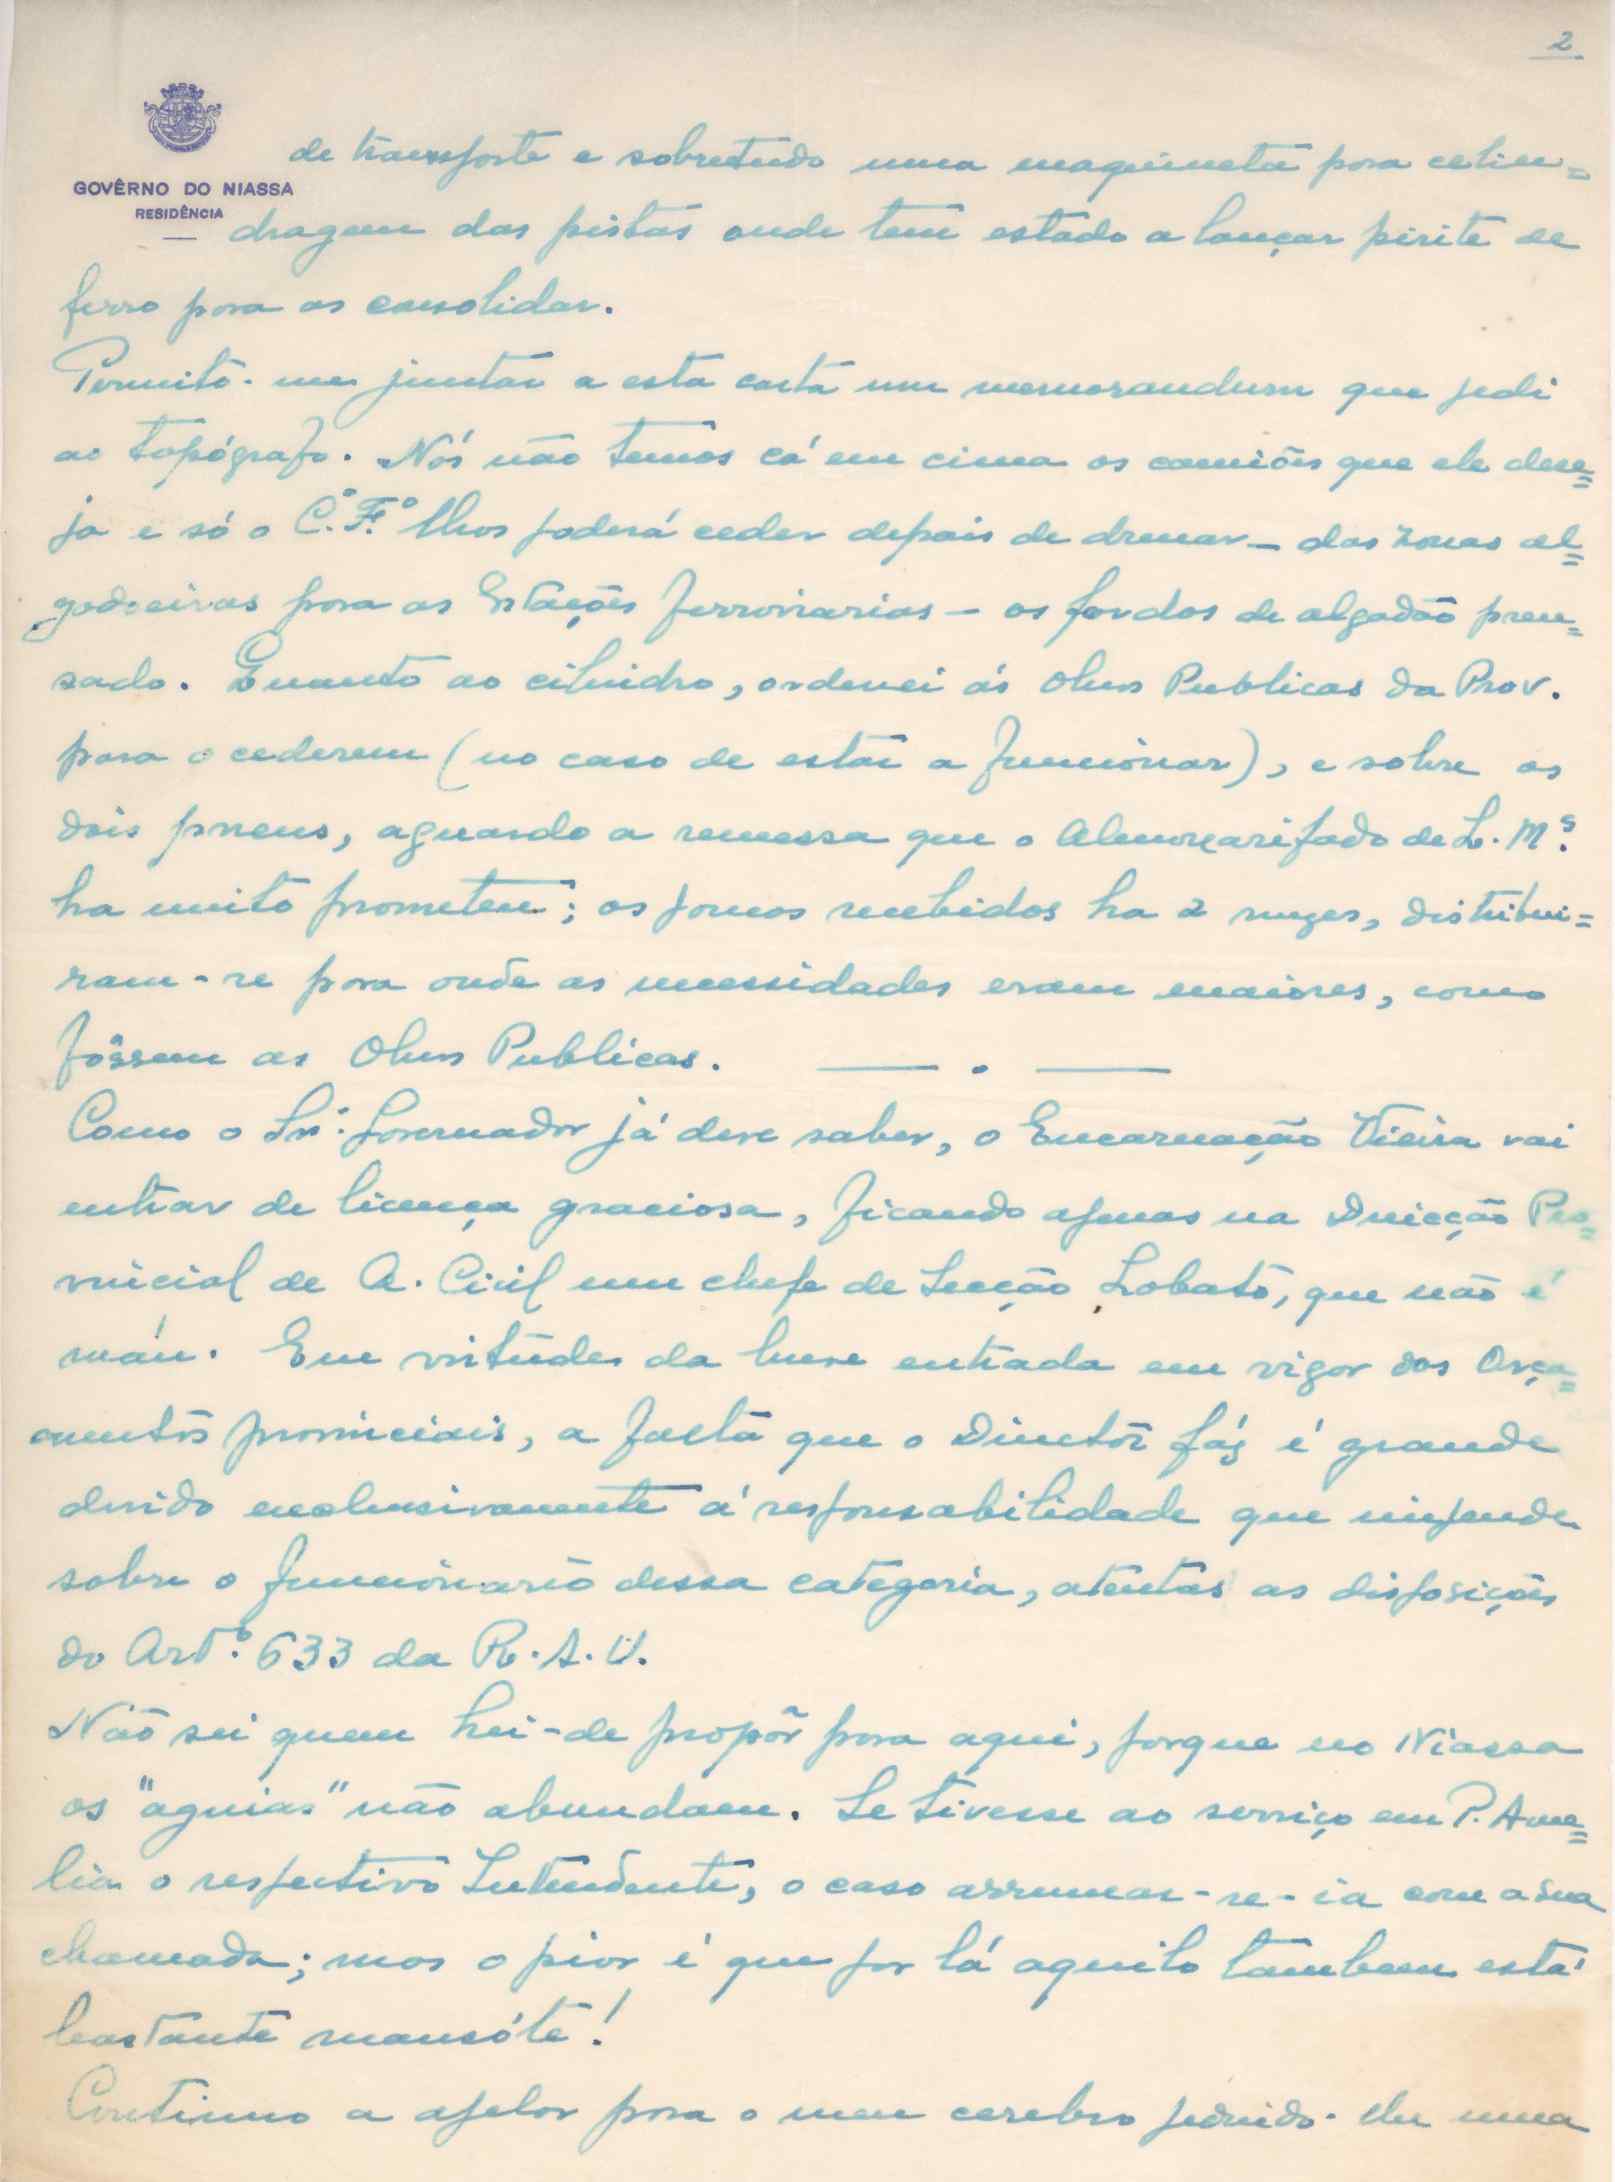 2
GOVÊRNO DO NIASSA
RESIDÊNCIA
de transporte e sobretudo uma maquineta para celin=
dragem das pistas onde tem estado a lançar pirite de
ferro para as consolidar.
Permito-me juntar a esta carta um memorandum que pedi
ao topógrafo. Nós não temos cá em cima os camiões que ele dese=
ja e só o C.º F.º lhos poderá ceder depois de drenar - das zonas al=
godoeiras para as Estações ferroviarias - os fardos de algodão pren=
sado. Quanto ao cilindro, ordenei ás Obras Publicas da Prov.
para o cederem (no caso de estar a funcionar), e sobre os
dois pneus, aguardo a remessa que o Almoxarifado de L. M.s
ha muito prometeu; os poucos recebidos ha 2 mezes, distribui=
ram-se para onde as necessidades eram maiores, como
fôssem as Obras Publicas. — . —
Como o Snr. Governador já deve saber, o Encarnação Vieira vai
entrar de licença graciosa, ficando apenas na Direcção Pro=
vincial de A. Civil um chefe de Secção, Lobato, que não é
máu. Em virtudes da breve entrada em vigor dos Orça=
mentos provinciais, a falta que o Director fáz é grande
devido exclusivamente á responsabilidade que impende
sobre o funcionario dessa categoria, atentas as disposições
do Artº. 633 da R. A. U.
Não sei quem hei-de propôr para aqui, porque no Niassa
os "aguias" não abundam. Se tivesse ao serviço em P. Ame=
lia o respectivo Intendente, o caso arrumar-se-ia com a sua
chamada; mas o pior é que por lá aquilo tambem está
bastante mansóte!
Continuo a apelar para o meu cerebro pedindo-lhe uma